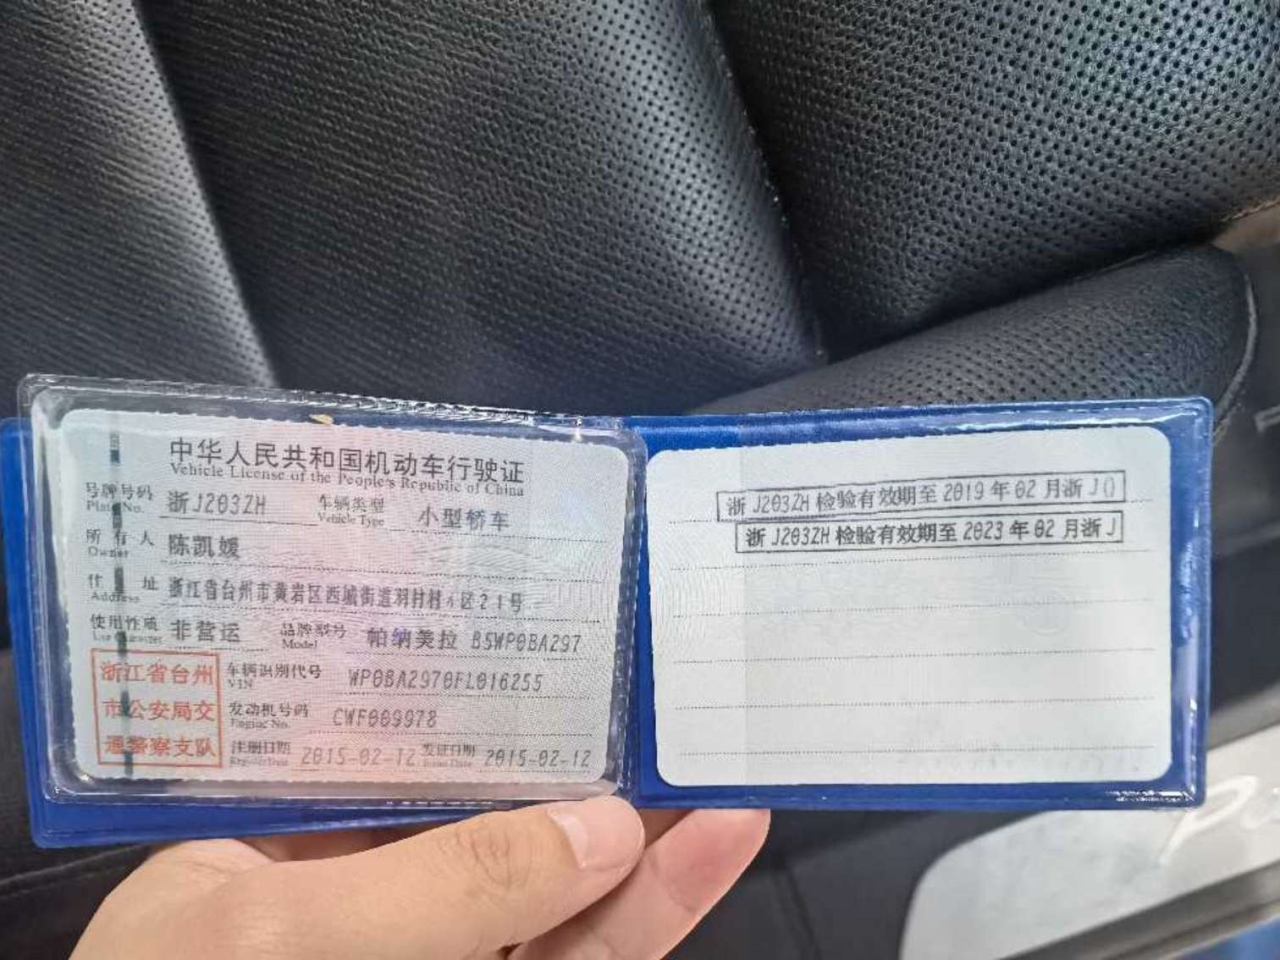 中华人民共和国机动车行驶证
Vehicle License of the People's Republic of China
号牌号码 浙J203ZH 车辆类型 小型轿车
Plate No. Vehicle Type
所有人 陈凯媛
Owner
住址 浙江省台州市黄岩区西城街道羽村村4区21号
Address
使用性质 非营运 品牌型号 帕纳美拉 BSWP0BA297
Use Character Model
浙江省台州
市公安局交
通警察支队
车辆识别代号 WP0BA2970FL016255
VIN
发动机号码 CWF009978
Engine No.
注册日期 2015-02-12 发证日期 2015-02-12
Register Date Issue Date
浙J203ZH检验有效期至2019年02月浙J()
浙J203ZH检验有效期至2023年02月浙J